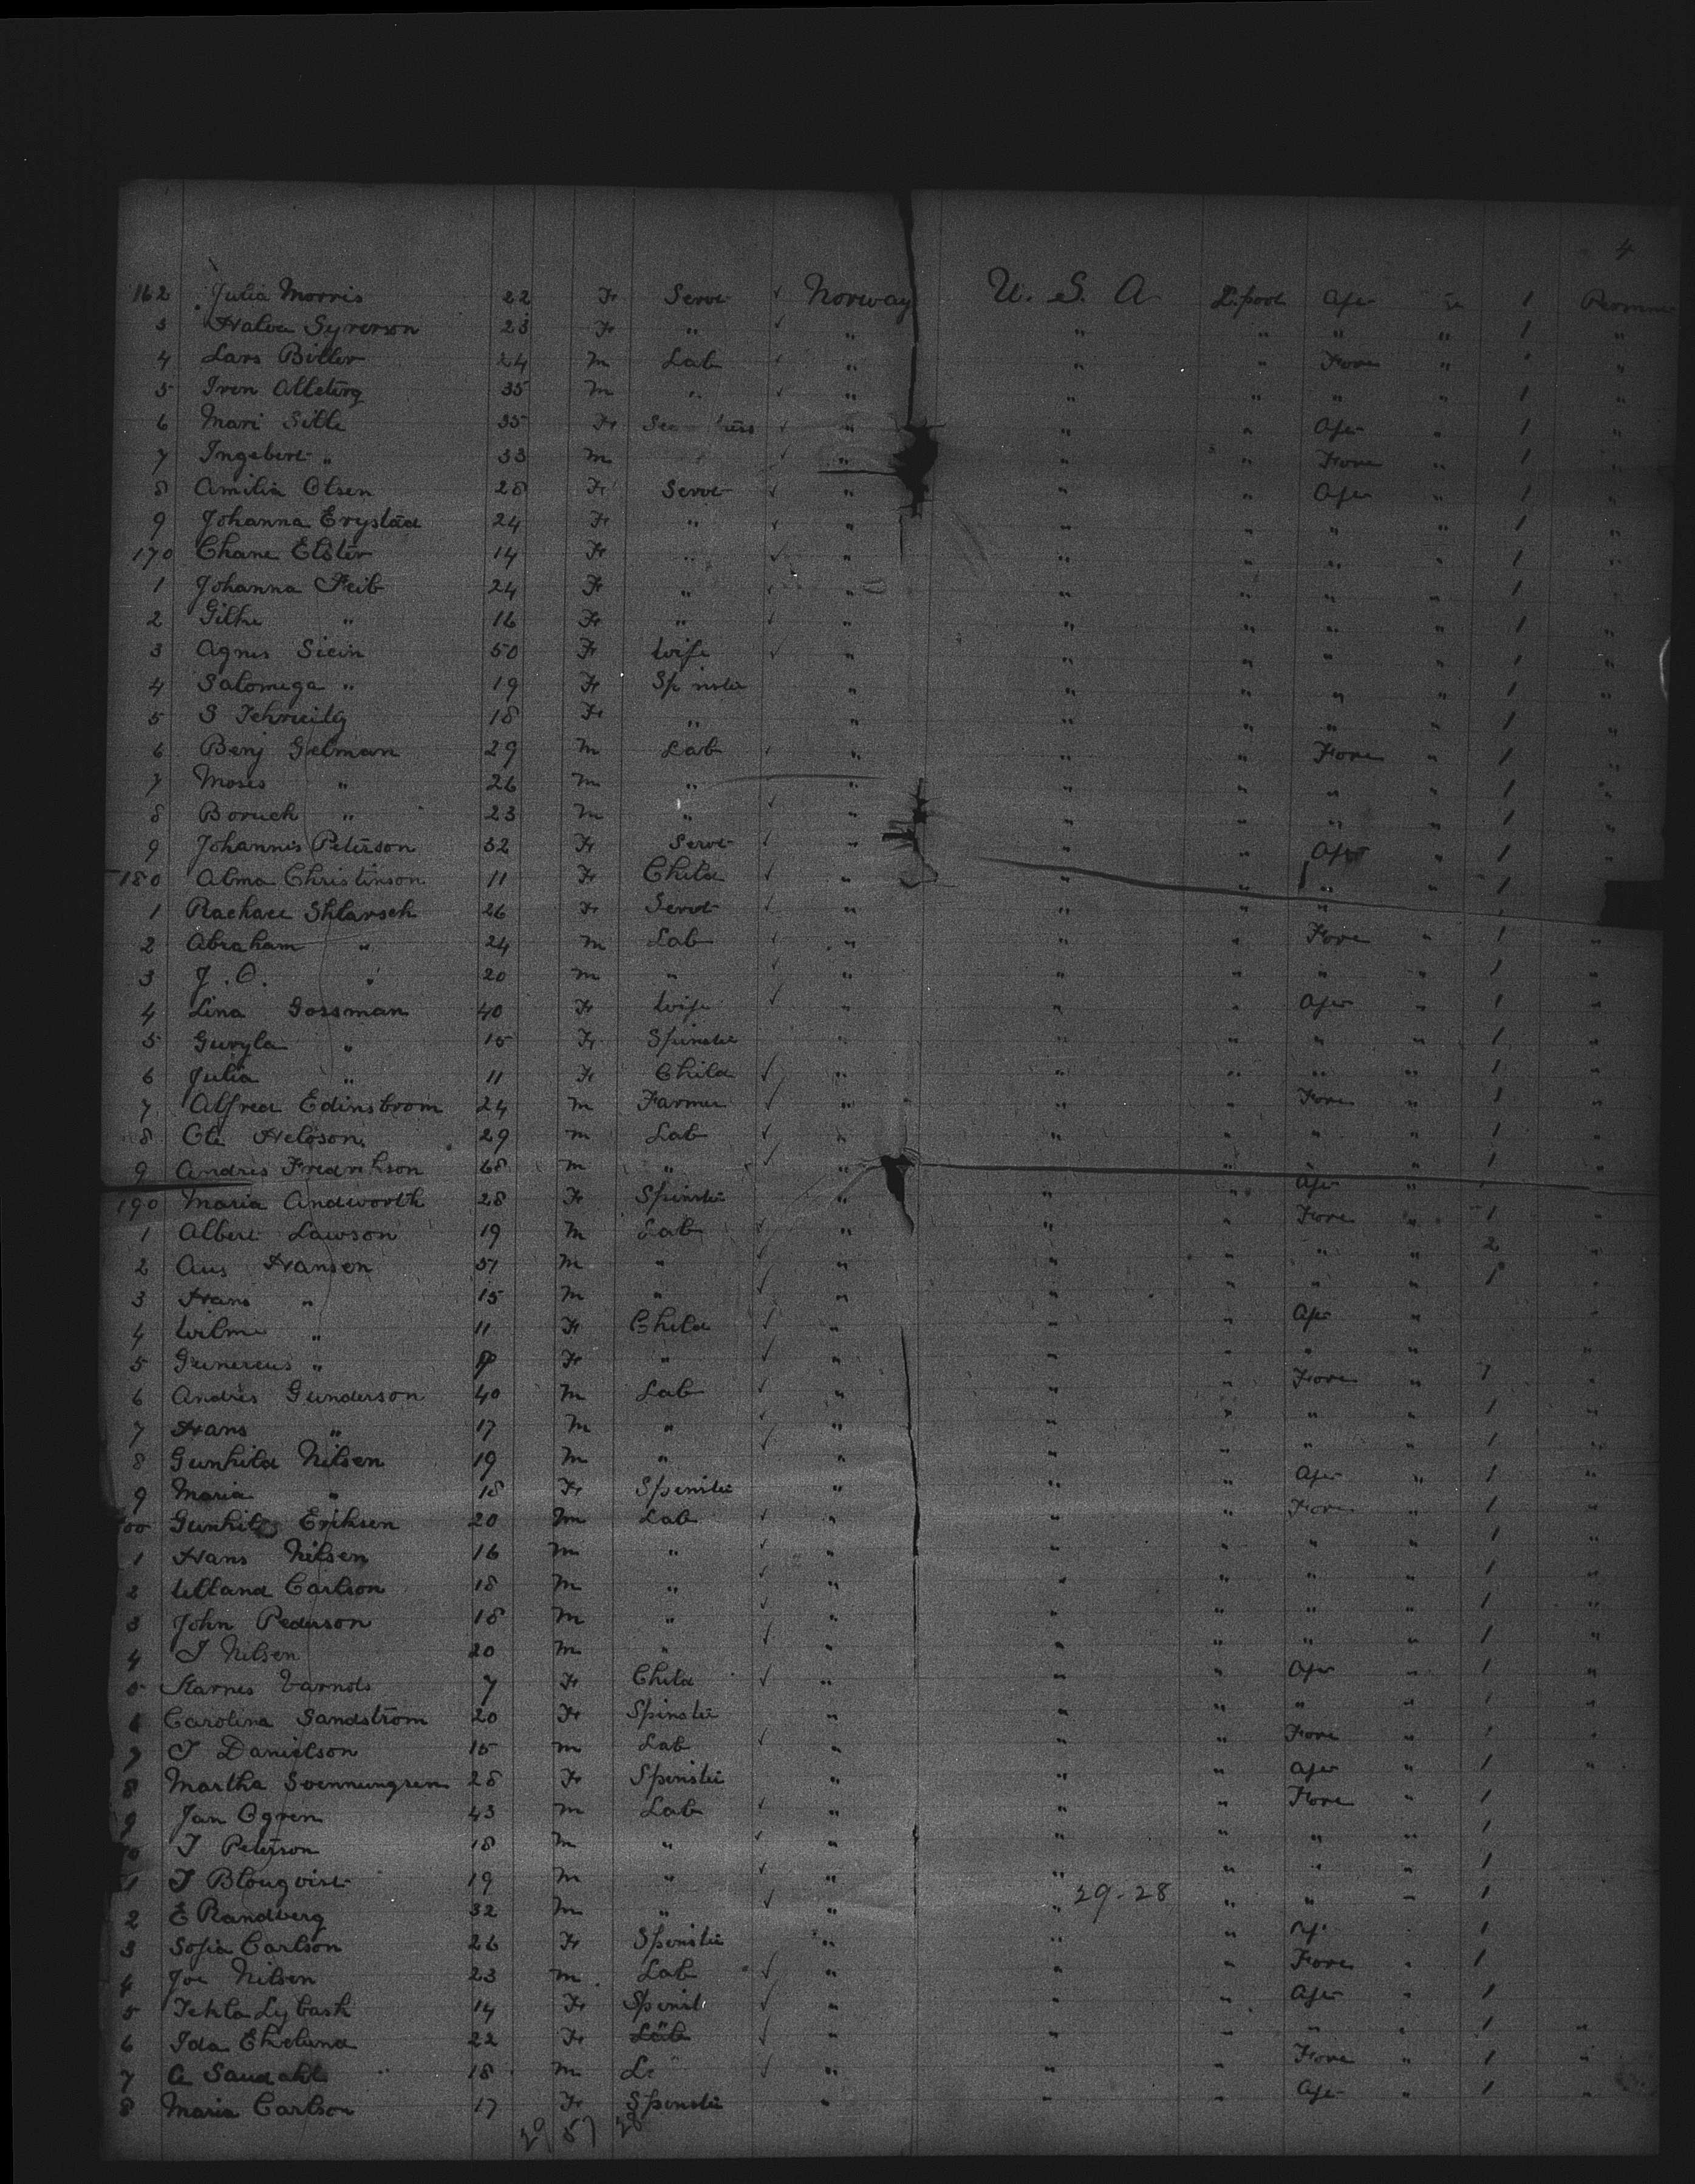 4
162 Julia Morris 22 Fe Servt ✓ Norway U. S. A L.pool After 1
3 Halva Syverson 23 Fe " ✓ " " " " " 1 "
4 Lars 24 m Lab ✓ " " " Fore " "
5 Iven 35 m " ✓ " " " " " 1 "
6 Mari Sille 35 Fe ✓ " " " After " 1 "
7 Ingebert " 33 m ✓ " " " Fore " 1 "
8 Amilia Olsen 28 Fe Servt ✓ " " " After " 1 "
9 Johanna Erystad 24 Fe " ✓ " " " " " 1 "
170 Elster 14 Fe " ✓ " " " " " 1 "
1 Johanna Feib 24 Fe " ✓ " " " " " 1 "
2 " 16 Fe " ✓ " " " " " 1 "
3 Agnes 50 Fe Wife ✓ " " " " " 1 "
4 Salomega " 19 Fe Sp nster " " " " " 1 "
5 S 18 Fe " " " " " " 1 "
6 Benj Gelman 29 m Lab ✓ " " " Fore " 1 "
7 Moses " 26 m " " " " " " 1 "
8 Boruch " 23 m " ✓ " " " " " 1 "
9 Johannis Peterson 32 Fe Servt ✓ " " " After " 1 "
180 Alma Christinson 11 Fe Child ✓ " " " " " 1
1 Rachael Shlarsch 26 Fe Servt ✓ " " " "
2 Abraham " 24 m Lab ✓ " " " Fore " 1 "
3 J. O. " 20 m " ✓ " " " " " 1 "
4 Lina Gossman 40 Fe Wife ✓ " " " After " 1 "
5 Guryla " 15 Fe Spinster " " " " " 1 "
6 Julia " 11 Fe Child ✓ " " " " " 1 "
7 Alfred Edinstrom 24 m Farmer ✓ " " " Fore " 1 "
8 Ole Helgson 29 m Lab ✓ " " " " " 1 "
9 Andris Fredrikson 68 m " ✓ " " " " 1 "
190 Maria Andworth 28 Fe Spinster " " " After "
1 Albert Lawson 19 m Lab ✓ " " " Fore " 1 "
2 Aus Hansen 37 m " ✓ " " " " " 2 "
3 Hans " 15 m " ✓ " " " " " 1 "
4 Wilm " 11 Fe Child ✓ " " " After " "
5 " Fe " ✓ " " " " " "
6 Andris Gunderson 40 m Lab ✓ " " " Fore " 1 "
7 Hans " 17 m " ✓ " " " " " 1 "
8 Gunhild Nilsen 19 m " ✓ " " " " " 1 "
9 Maria " 18 Fe Spinster " " " After " 1 "
Eriksen 20 m Lab ✓ " " " Fore " 1 "
1 Hans Nilsen 16 m " ✓ " " " " " 1 "
2 Ulland Carlson 18 m " ✓ " " " " " 1 "
3 John Pederson 18 m " ✓ " " " " " 1 "
4 J Nilsen 20 m " ✓ " " " " " 1 "
5 Karnes 7 Fe Child ✓ " " " After " 1 "
6 Carolina Sandstrom 20 Fe Spinster " " " " " 1 "
7 J Danielson 15 m Lab ✓ " " " Fore " 1 "
8 Martha Soennungsen 28 Fe Spinster " " " After " 1 "
9 Jan Ogren 43 m Lab ✓ " " " Fore " 1
10 J Peterson 18 m " ✓ " " " " " 1
1 J Blouqvist 19 m " ✓ " " " " " 1
2 E Randberg 32 m " ✓ " " 29-28 " " " 1
3 Sofia Carlson 26 Fe Spinster " " " Af 1
4 Joe Nilsen 23 m Lab ✓ " " " Fore " 1
5 Tekla Lybash 14 Fe Spinst ✓ " " " After " 1
6 Ida Ekelund 22 Fe ✓ " " " " " 1 "
7 A Saudahl 18 m ✓ " " " Fore " 1 "
8 Maria Carlson 17 Fe Spinster " " " After " 1 "
29 57 28